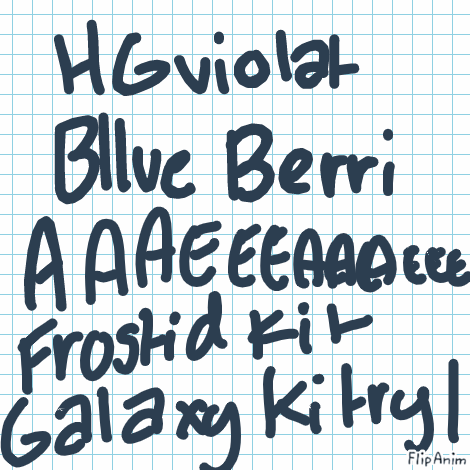 HGviolat
Bllve Berri
AAAEEEAAAEEE
Frostid Kit
Galaxy Kitry!
FlipAnim